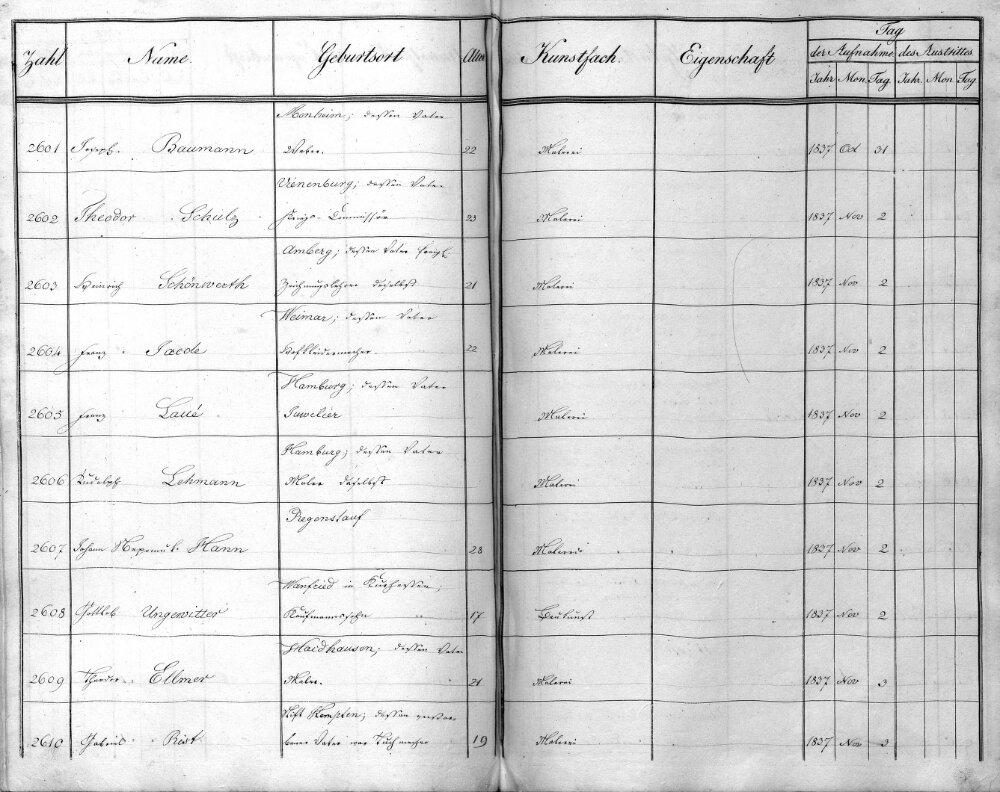 Zahl Name Geburtsort Alter Kunstfach Eigenschaft Tag
der Aufnahme des Austrittes
Jahr Mon Tag Jahr. Mon Tag
Monheim; dessen Vater
2601 Joseph Baumann Weber. 22 Malerei 1837 Oct 31
Vienenburg; dessen Vater
2602 Theodor Schulz 23 Malerei 1837 Nov 2
Amberg; dessen Vater königl.
2603 Heinrich Schönwerth Zeichnungslehrer daselbst 21 Malerei 1837 Nov 2
Weimar; dessen Vater
2604 Franz Jaede Hofkleidermacher. 22 Malerei 1837 Nov 2
Hamburg; dessen Vater
2605 Franz Laué Juwelier Malerei 1837 Nov 2
Hamburg; dessen Vater
2606 Rudolph Lehmann Maler daselbst Malerei 1837 Nov 2
Regenstauf
2607 Johann Nepomuk Hann 28 Malerei 1837 Nov 2
Wanfried in Kurhessen,
2608 Gottlob Ungewitter Kaufmannssohn 17 Baukunst 1837 Nov 2
Haidhausen; dessen Vater
2609 Theodor Ellmer Maler. 21 Malerei 1837 Nov 3
Stift Kempten; dessen verstor
2610 Gabriel Rist bener Vater war Tuchmacher 19 Malerei 1837 Nov 3